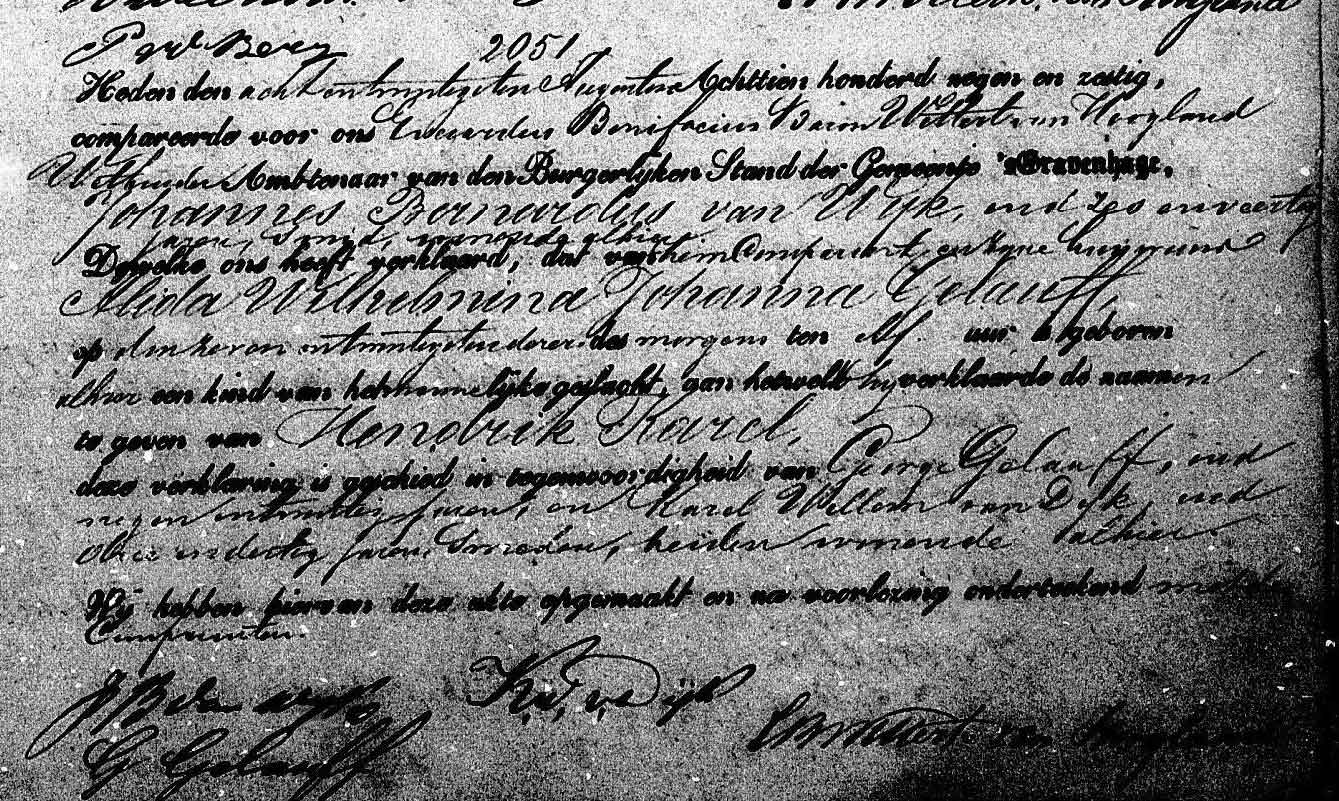 van Hoogland
P vd Berg 2051
Heden den acht en twintigsten Augustus Achttien honderd negen en zestig,
compareerde voor ons Evenardus Bonifacius Baron Wittert van Hoogland
Wethouder Ambtenaar van den Burgerlijken Stand der Gemeente 'sGravenhage,
Johannes Bernardus van Wijk, oud zes en veertig
jaren, Smid, wonende alhier
Dewelke ons heeft verklaard, dat van hem Comparant en zijne huisvrouw
Alida Wilhelmina Johanna Gelauff,
op den zeven en twintigsten dezer des morgens ten elf uur is geboren
alhier een kind van het mannelijke geslacht, aan hetwelk hij verklaarde de naamen
te geven van Hendrik Karel
deze verklaring is geschied in tegenwoordigheid van George Gelauff, oud
negen en twintig jaren, en Karel Willem van Dijk, oud
drie en dertig jaren, Smeden, beiden wonende alhier.
Wij hebben hiervan deze akte opgemaakt en na voorlezing onderteekend met de
Comparanten.
J B van Wijk
K, W, v, Dijk
G Gelauff
Wittert van Hoogland